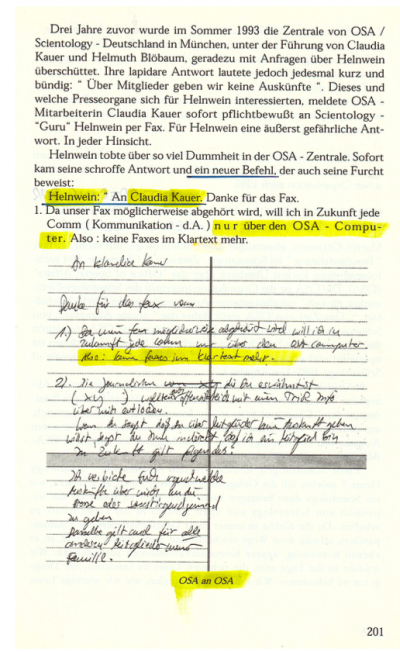 Drei Jahre zuvor wurde im Sommer 1993 die Zentrale von OSA /
Scientology - Deutschland in München, unter der Führung von Claudia
Kauer und Helmuth Blöbaum, geradezu mit Anfragen über Helnwein
überschüttet. Ihre lapidare Antwort lautete jedoch jedesmal kurz und
bündig: " Über Mitglieder geben wir keine Auskünfte ". Dieses und
welche Presseorgane sich für Helnwein interessierten, meldete OSA -
Mitarbeiterin Claudia Kauer sofort pflichtbewußt an Scientology -
"Guru" Helnwein per Fax. Für Helnwein eine äußerst gefährliche Ant-
wort. In jeder Hinsicht.
Helnwein tobte über so viel Dummheit in der OSA - Zentrale. Sofort
kam seine schroffe Antwort und ein neuer Befehl, der auch seine Furcht
beweist:
Helnwein: " An Claudia Kauer. Danke für das Fax.
1. Da unser Fax möglicherweise abgehört wird, will ich in Zukunft jede
Comm ( Kommunikation - d.A. ) nur über den OSA - Compu-
ter. Also : keine Faxes im Klartext mehr.
An Kauer
Danke für das Fax vom
1.) Da unser Fax möglicherweise abgehört wird will ich in
Zukunft jede comm nur über den OSA computer.
Also: keine Faxes im Klartext mehr.
2). Die Journalistin die Du erwähntest
( )
über mich entlocken.
Wenn Du sagst daß Du über Mitglieder keine Auskunft geben
willst, sagst Du damit indirekt, daß ich ein Mitglied bin
In Zukunft gilt folgendes:
Ich verbiete Euch irgendwelche
Auskünfte über mich an die
Presse oder sonst irgendjemand
zu geben
Dasselbe gilt auch für alle
anderen Mitglieder meiner
Familie.
OSA an OSA
201